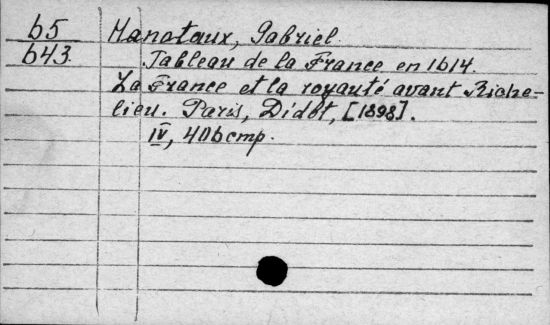 65 Hanotaux, Gabriel.
643. Tableau de la France en 1614.
La France et la royauté avant Riche-
lieu. Paris, Didot, [1898].
IV, 406 стр.